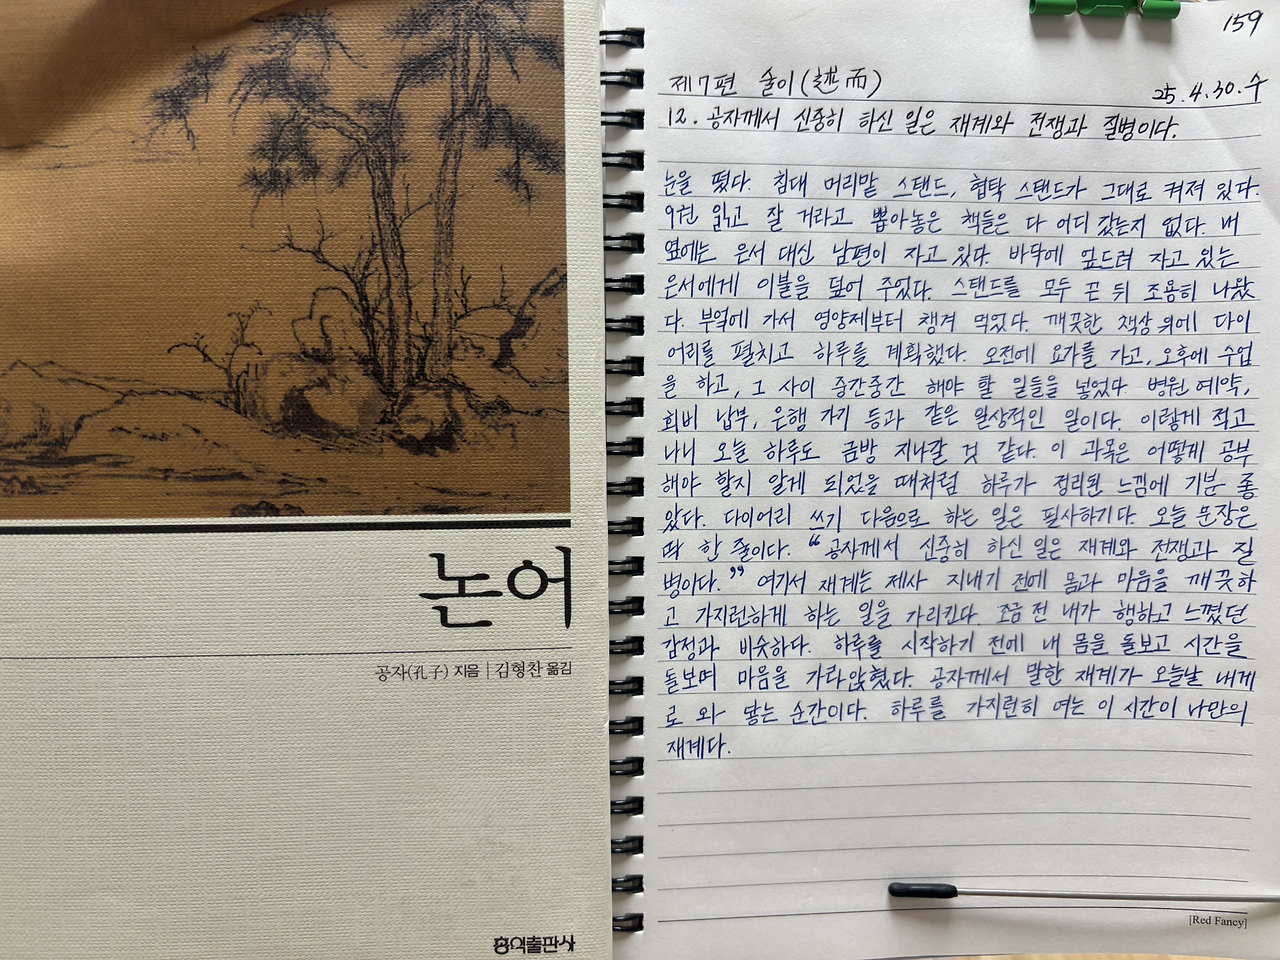 논어
공자(孔子) 지음 | 김형찬 옮김
홍익출판사
159
제7편 술이(述而)
25.4.30.수
12. 공자께서 신중히 하신 일은 재계와 전쟁과 질병이다.
눈을 떴다. 침대 머리맡 스탠드, 협탁 스탠드가 그대로 켜져 있다.
9권 읽고 잘 거라고 뽑아놓은 책들은 다 어디 갔는지 없다. 내
옆에는 은서 대신 남편이 자고 있다. 바닥에 엎드려 자고 있는
은서에게 이불을 덮어 주었다. 스탠드를 모두 끈 뒤 조용히 나왔
다. 부엌에 가서 영양제부터 챙겨 먹었다. 깨끗한 책상 위에 다이
어리를 펼치고 하루를 계획했다. 오전에 요가를 가고, 오후에 수업
을 하고, 그 사이 중간중간 해야 할 일들을 넣었다. 병원 예약,
회비 납부, 은행 가기 등과 같은 일상적인 일이다. 이렇게 적고
나니 오늘 하루도 금방 지나갈 것 같다. 이 과목은 어떻게 공부
해야 할지 알게 되었을 때처럼 하루가 정리된 느낌에 기분 좋
았다. 다이어리 쓰기 다음으로 하는 일은 필사하기다. 오늘 문장은
딱 한 줄이다. “공자께서 신중히 하신 일은 재계와 전쟁과 질
병이다.” 여기서 재계는 제사 지내기 전에 몸과 마음을 깨끗하
고 가지런하게 하는 일을 가리킨다. 조금 전 내가 행하고 느꼈던
감정과 비슷하다. 하루를 시작하기 전에 내 몸을 돌보고 시간을
돌보며 마음을 가라앉혔다. 공자께서 말한 재계가 오늘날 내게
로 와 닿는 순간이다. 하루를 가지런히 여는 이 시간이 나만의
재계다.
[Red Fancy]